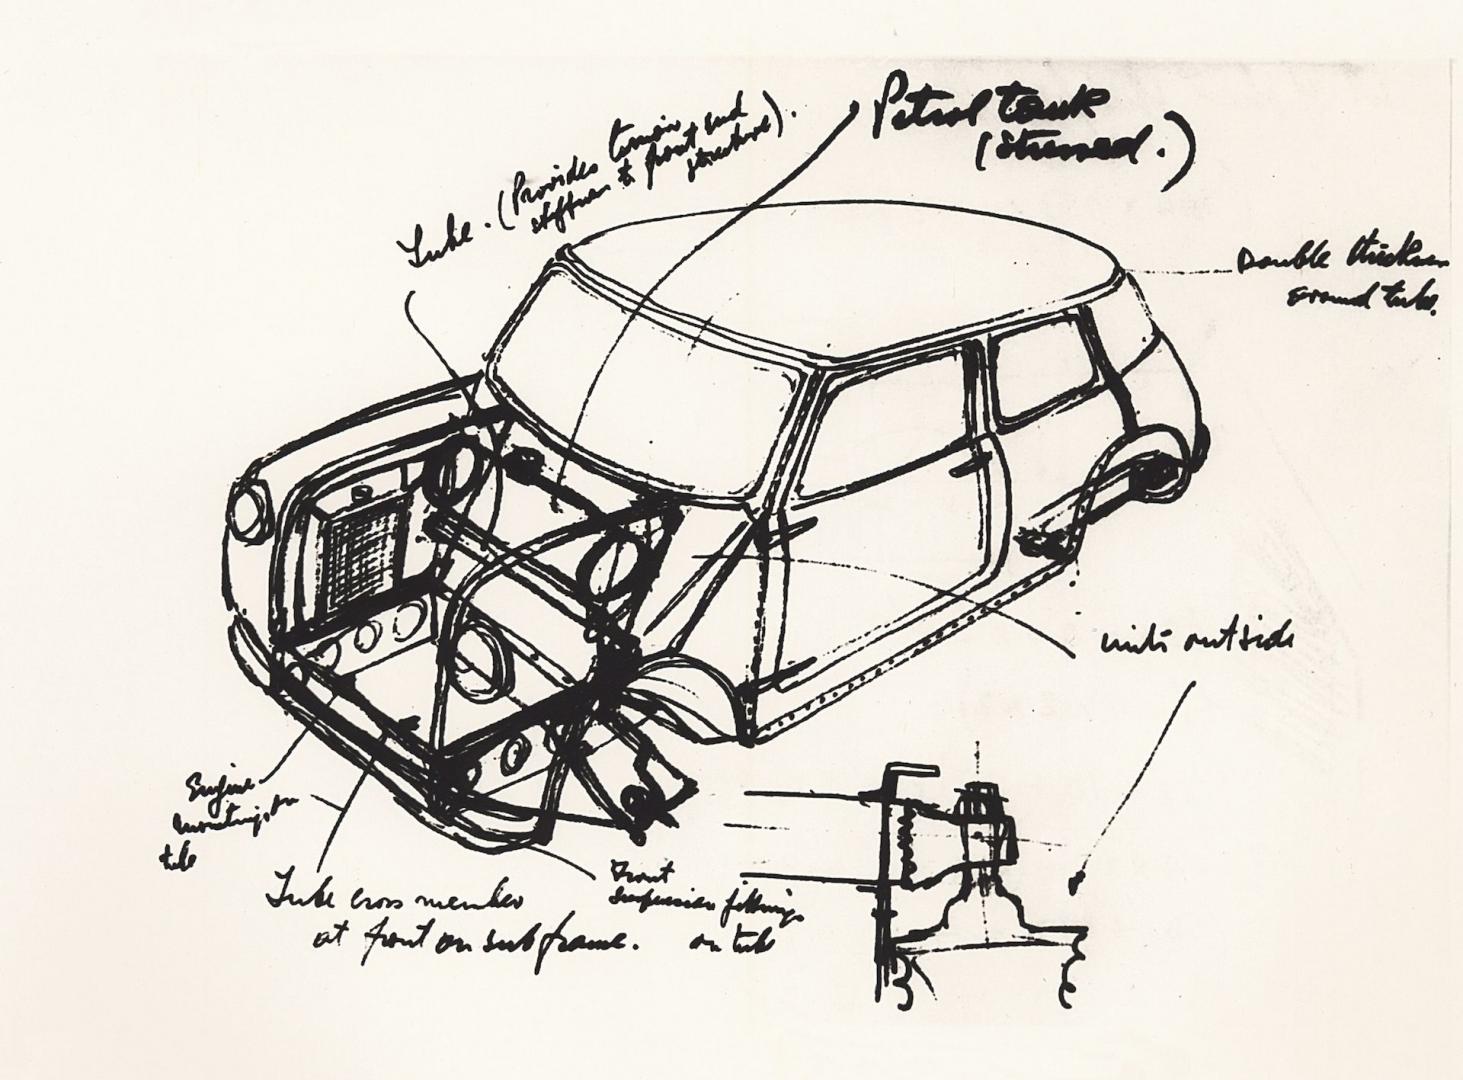 Petrol tank
(stressed.)
Tube. (Provides torsion and
stiffness to front
structure).
Double thickness
around tube.
units outside
Engine
mountings on
tube
Tube cross member
at front on subframe.
Front
suspension fittings
on tube